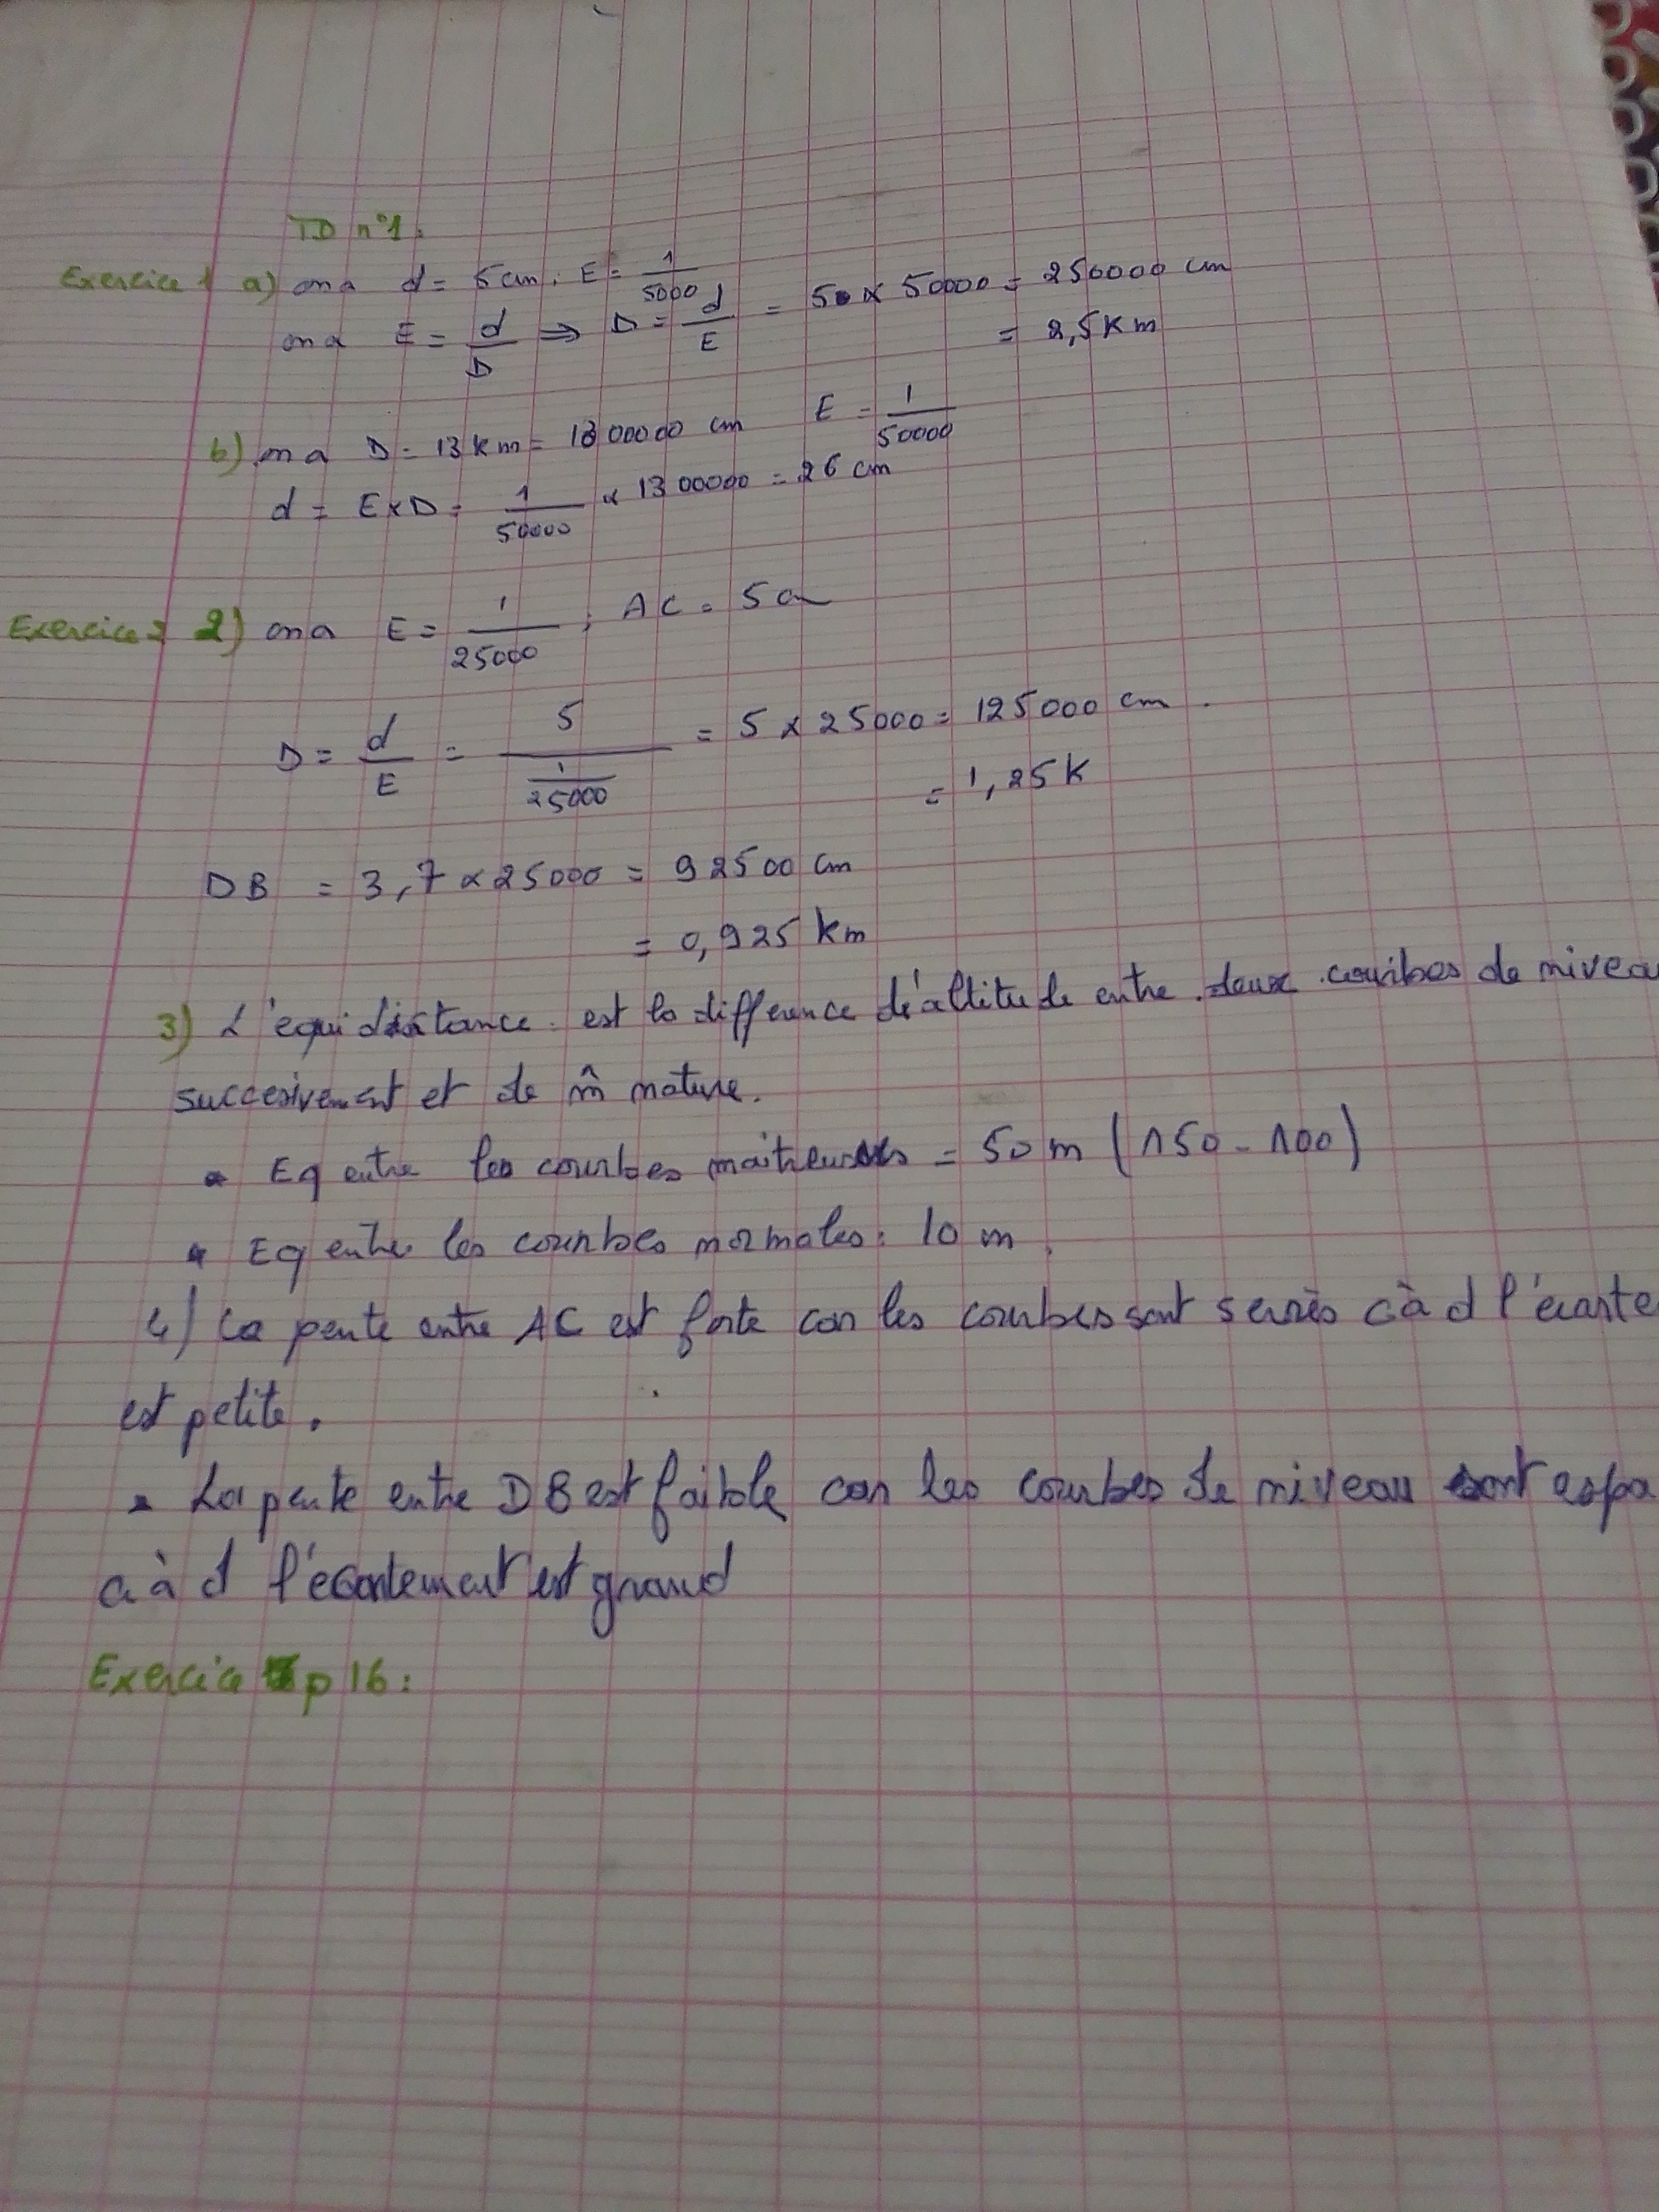 TD n°1:
Exercice 1 a) on a d = 5 cm. E = 1/5000
on a E = d/D ⇒ D = d/E = 5 x 50000 = 250000 cm
= 2,5 Km
b) on a D = 13 km = 1300000 cm E = 1/50000
d = E x D = 1/50000 x 1300000 = 26 cm
Exercice 2 2) on a E = 1/25000 ; AC = 5 cm
D = d/E = 5/(1/25000) = 5 x 25000 = 125000 cm.
= 1,25 K
DB = 3,7 x 25000 = 92500 cm
= 0,925 km
3) L'equidistance est la difference d'altitude entre deux courbes de nivea
succesivement et de m̂ nature.
Eq entre les courbes maitresses = 50 m (150 - 100)
Eq entre les courbes normales: 10 m.
4) La pente entre AC est forte car les courbes sont serrès càd l'écarte
est petite.
La pente entre DB est faible car les courbes de niveau sont espa
càd l'écartement est grand
Exercice p 16: